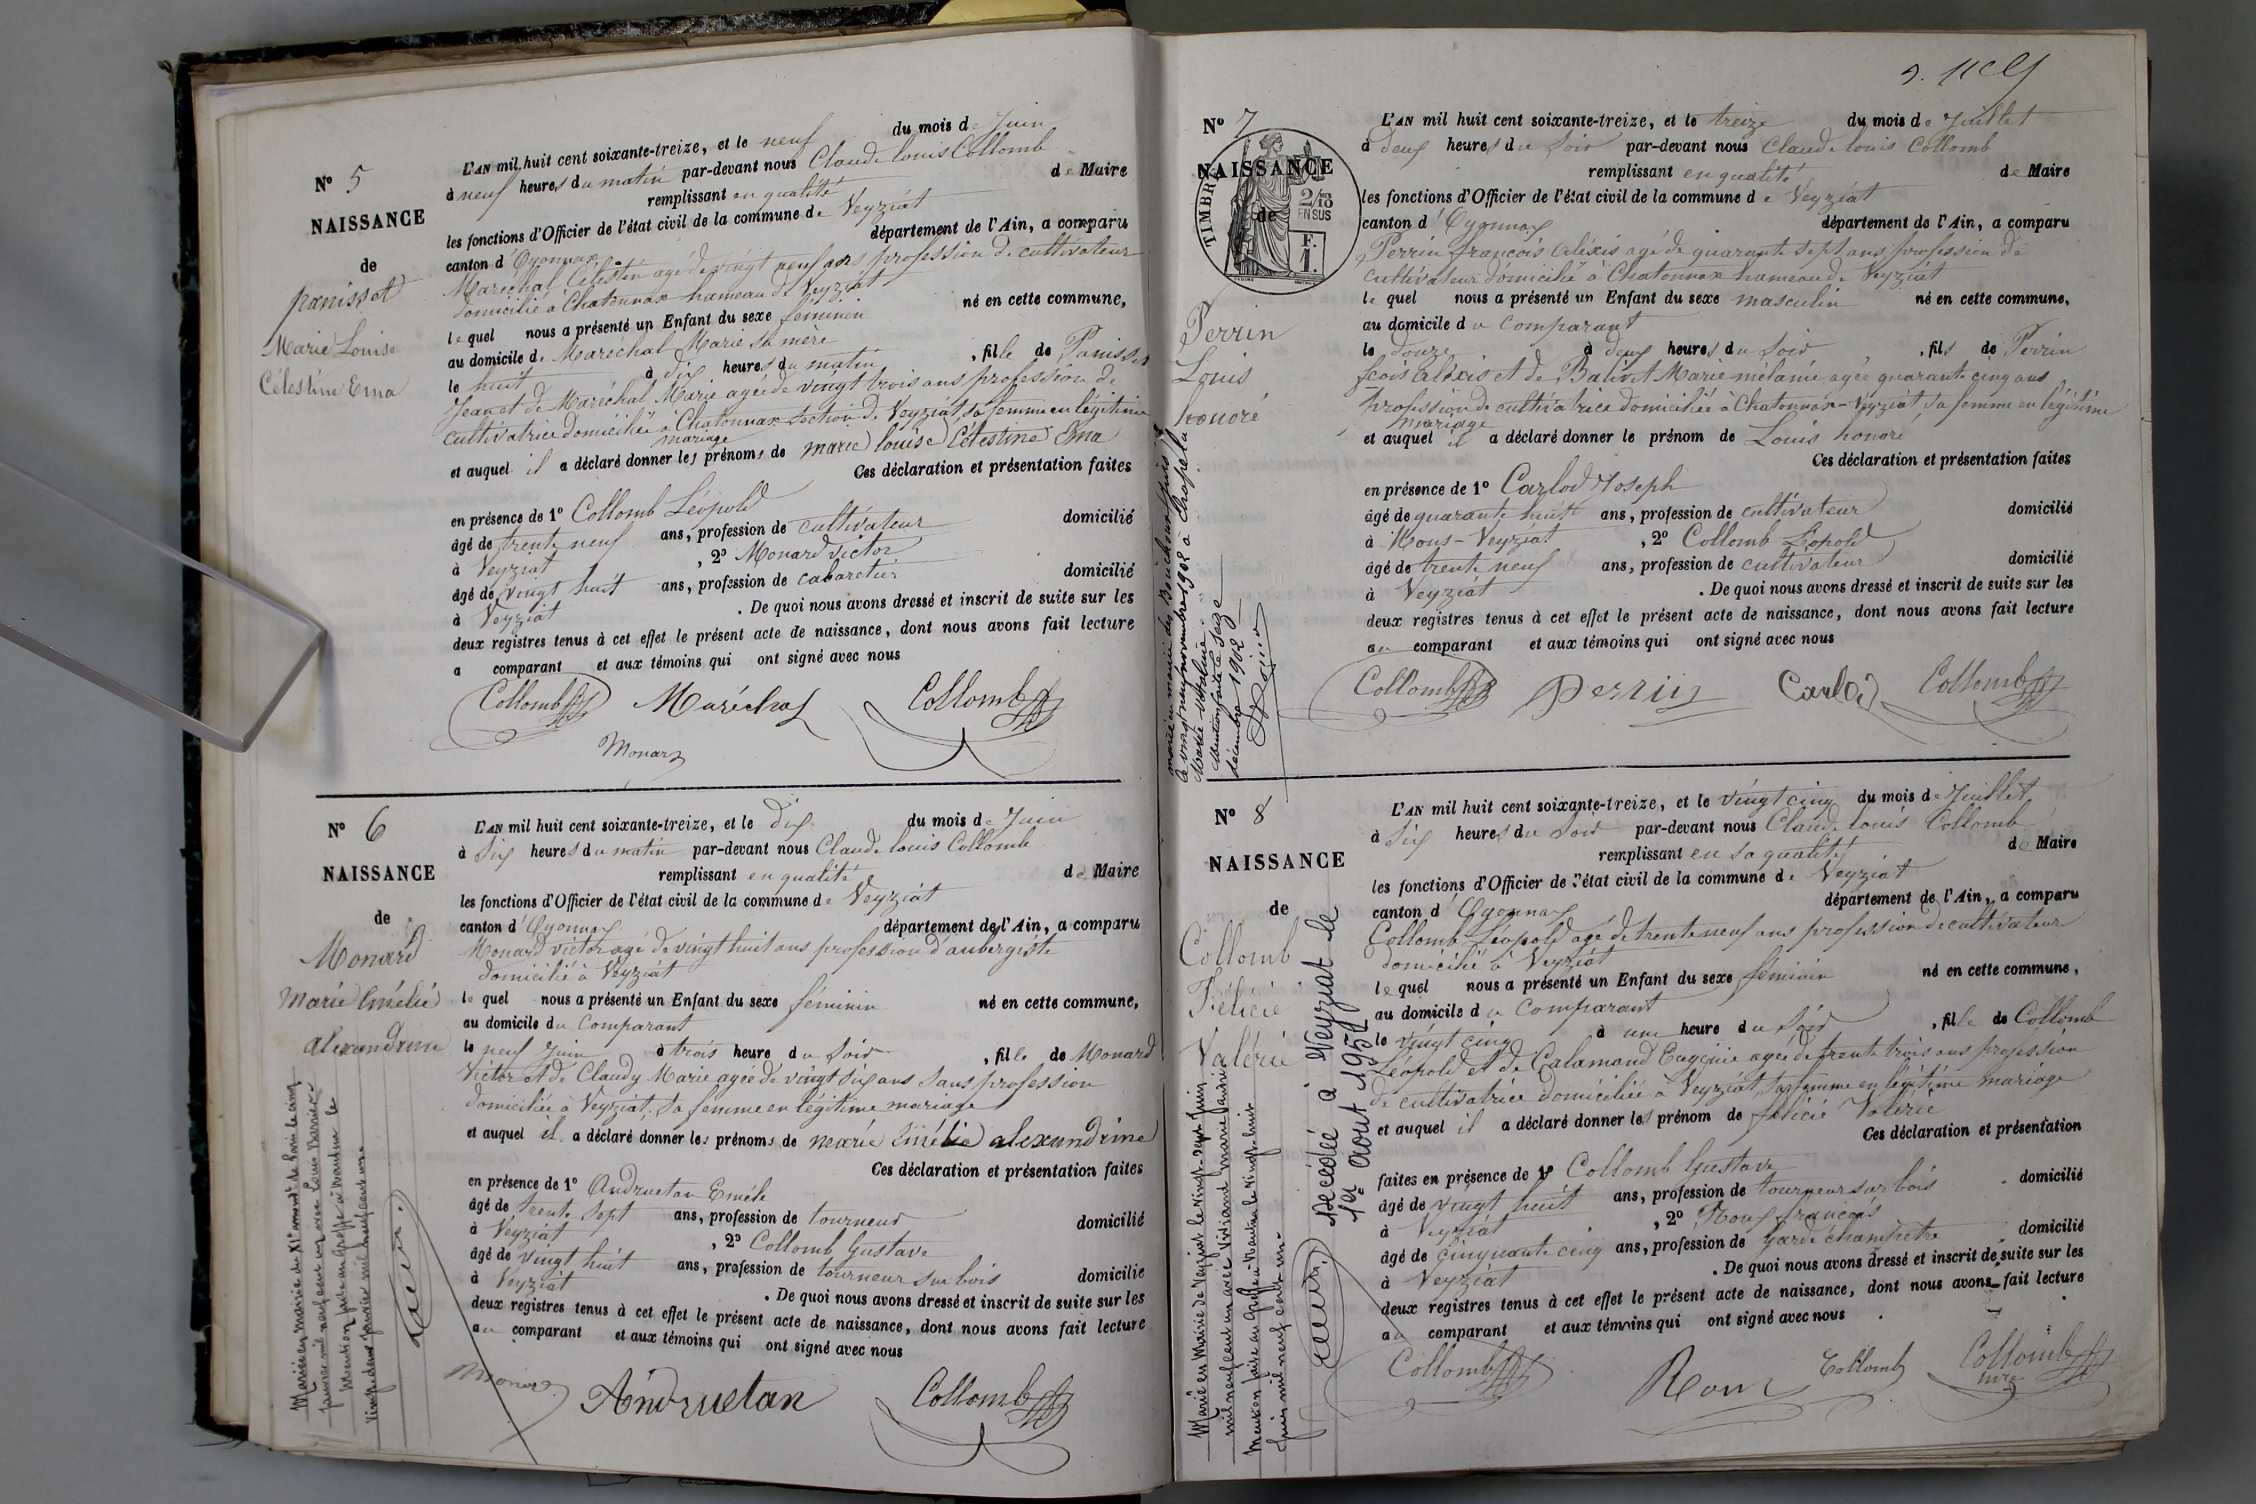 N° 5
NAISSANCE
de
panisset
Marie Louise
Célestine Ema
L'AN mil huit cent soixante-treize, et le neuf du mois de Juin
à neuf heures du matin par-devant nous Claude louis Collomb
remplissant en qualité de Maire
les fonctions d'Officier de l'état civil de la commune de Veyziat
canton d'Oyonnax département de l'Ain, a comparu
Maréchal Célestin agé de vingt neuf ans profession de cultivateur
domicilié à Chatonnax hameau de Veyziat
le quel nous a présenté un Enfant du sexe féminin né en cette commune,
au domicile de Maréchal Marie sa mère
le huit à dix heures du matin, fille de Panisset
Jean et de Maréchal Marie agée de vingt trois ans profession de
cultivatrice domiciliée à Chatonnax section de Veyziat sa femme en légitime
mariage
et auquel il a déclaré donner les prénoms de marie louise Célestine Ema
Ces déclaration et présentation faites
en présence de 1° Collomb Léopold
âgé de trente neuf ans, profession de cultivateur domicilié
à Veyziat, 2° Monard victor
âgé de vingt huit ans, profession de cabaretier domicilié
à Veyziat. De quoi nous avons dressé et inscrit de suite sur les
deux registres tenus à cet effet le présent acte de naissance, dont nous avons fait lecture
a comparant et aux témoins qui ont signé avec nous
Collomb Maréchal Collomb
Monard
N° 6
NAISSANCE
de
Monard
Marie Emélie
alexandrine
L'AN mil huit cent soixante-treize, et le dix du mois de Juin
à six heures du matin par-devant nous Claude louis Collomb
remplissant en qualité de Maire
les fonctions d'Officier de l'état civil de la commune de Veyziat
canton d'Oyonnax département de l'Ain, a comparu
Monard victor agé de vingt huit ans profession d'aubergiste
domicilié à Veyziat
le quel nous a présenté un Enfant du sexe féminin né en cette commune,
au domicile du comparant
le neuf Juin à trois heure du soir, fille de Monard
Victor et de Claudy Marie agée de vingt six ans sans profession
domiciliée à Veyziat, sa femme en légitime mariage
et auquel il a déclaré donner les prénoms de marie Emélie alexandrine
Ces déclaration et présentation faites
en présence de 1° Andruetan Emile
âgé de trente sept ans, profession de tourneur domicilié
à Veyziat, 2° Collomb Gustave
âgé de vingt huit ans, profession de tourneur sur bois domicilié
à Veyziat. De quoi nous avons dressé et inscrit de suite sur les
deux registres tenus à cet effet le présent acte de naissance, dont nous avons fait lecture
au comparant et aux témoins qui ont signé avec nous
Monard Andruetan Collomb
Mariée en mairie du XIe arrondt de Paris le cinq
janvier mil neuf cent un avec Louis
Mention faite au Greffe à Nantua le
vingt deux janvier mil neuf cent un
N° 7
TIMBRE
2/10
EN SUS
F.
1.
NAISSANCE
de
Perrin
Louis
honoré
L'AN mil huit cent soixante-treize, et le treize du mois de Juillet
à deux heures du soir par-devant nous Claude louis Collomb
remplissant en qualité de Maire
les fonctions d'Officier de l'état civil de la commune de Veyziat
canton d'Oyonnax département de l'Ain, a comparu
Perrin françois aléxis agé de quarante sept ans profession de
cultivateur domicilié à Chatonnax hameau de Veyziat
le quel nous a présenté un Enfant du sexe masculin né en cette commune,
au domicile du comparant
le douze à deux heures du soir, fils de Perrin
fcois aléxis et de Bativet Marie mélanie agée quarante cinq ans
profession de cultivatrice domiciliée à Chatonnax-Veyziat sa femme en légitime
mariage
et auquel il a déclaré donner le prénom de Louis honoré
Ces déclaration et présentation faites
en présence de 1° Carlod Joseph
âgé de quarante huit ans, profession de cultivateur domicilié
à Mons-Veyziat, 2° Collomb Léopold
âgé de trente neuf ans, profession de cultivateur domicilié
à Veyziat. De quoi nous avons dressé et inscrit de suite sur les
deux registres tenus à cet effet le présent acte de naissance, dont nous avons fait lecture
au comparant et aux témoins qui ont signé avec nous
Collomb Perrin Carlod Collomb
le vingt neuf novembre 1902 à
Mention faite le seize
décembre 1902
N° 8
NAISSANCE
de
Collomb
Félicie
Valérie
L'AN mil huit cent soixante-treize, et le vingt cinq du mois de Juillet
à six heures du soir par-devant nous Claude louis Collomb
remplissant en sa qualité de Maire
les fonctions d'Officier de l'état civil de la commune de Veyziat
canton d'Oyonnax département de l'Ain, a comparu
Collomb Léopold agé de trente neuf ans profession de cultivateur
domicilié à Veyziat
le quel nous a présenté un Enfant du sexe féminin né en cette commune,
au domicile du comparant
le vingt cinq à une heure du soir, fille de Collomb
Léopold et de Calamand Eugénie agée de trente trois ans profession
de cultivatrice domiciliée à Veyziat sa femme en légitime mariage
et auquel il a déclaré donner les prénom de félicie Valérie
Ces déclaration et présentation
faites en présence de 1° Collomb Gustave
âgé de vingt huit ans, profession de tourneur sur bois domicilié
à Veyziat, 2° Roux françois
âgé de cinquante cinq ans, profession de garde champêtre domicilié
à Veyziat. De quoi nous avons dressé et inscrit de suite sur les
deux registres tenus à cet effet le présent acte de naissance, dont nous avons fait lecture
au comparant et aux témoins qui ont signé avec nous
Collomb Roux Collomb Collomb
Marié en Mairie de Veyziat le vingt-sept Juin
mil neuf cent un avec
Mention faite au Greffe à Nantua le vingt-huit
Juin mil neuf cent un.
Décédé à Veyziat le
1er Aout 1952